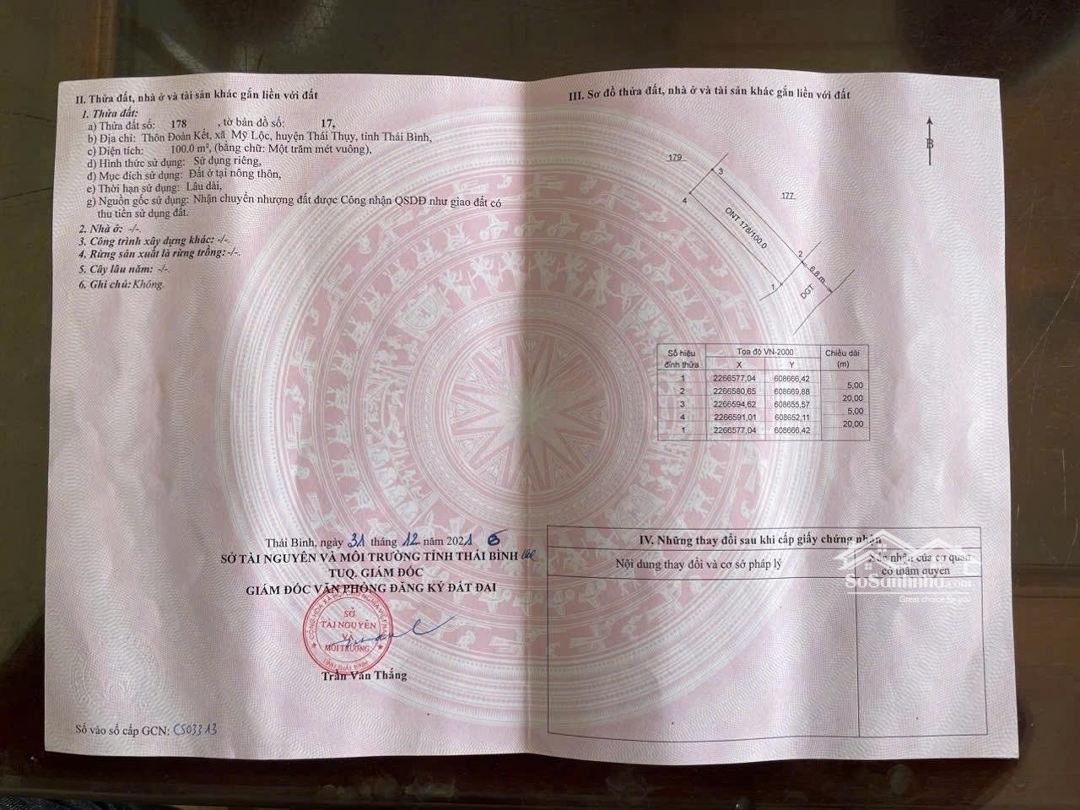 II. Thửa đất, nhà ở và tài sản khác gắn liền với đất
1. Thửa đất:
a) Thửa đất số: 178 , tờ bản đồ số: 17,
b) Địa chỉ: Thôn Đoàn Kết, xã Mỹ Lộc, huyện Thái Thụy, tỉnh Thái Bình,
c) Diện tích: 100.0 m², (bằng chữ: Một trăm mét vuông),
d) Hình thức sử dụng: Sử dụng riêng,
đ) Mục đích sử dụng: Đất ở tại nông thôn,
e) Thời hạn sử dụng: Lâu dài,
g) Nguồn gốc sử dụng: Nhận chuyển nhượng đất được Công nhận QSDĐ như giao đất có
thu tiền sử dụng đất.
2. Nhà ở: -/-.
3. Công trình xây dựng khác: -/-.
4. Rừng sản xuất là rừng trồng: -/-.
5. Cây lâu năm: -/-.
6. Ghi chú: Không.
Thái Bình, ngày 31 tháng 12 năm 2021
SỞ TÀI NGUYÊN VÀ MÔI TRƯỜNG TỈNH THÁI BÌNH
TUQ. GIÁM ĐỐC
GIÁM ĐỐC VĂN PHÒNG ĐĂNG KÝ ĐẤT ĐAI
SỞ
TÀI NGUYÊN
VÀ
MÔI TRƯỜNG
TỈNH THÁI BÌNH
Trần Văn Thắng
Số vào sổ cấp GCN: CS03313
III. Sơ đồ thửa đất, nhà ở và tài sản khác gắn liền với đất
B
179
3
177
4
ONT 178/100.0
2
6.8 m
1
DGT
Số hiệu đỉnh thửa Tọa độ VN-2000 Chiều dài (m)
X Y
1 2266577,04 608666,42
5,00
2 2266580,65 608669,88
20,00
3 2266594,62 608655,57
5,00
4 2266591,01 608652,11
20,00
1 2266577,04 608666,42
IV. Những thay đổi sau khi cấp giấy chứng nhận
Nội dung thay đổi và cơ sở pháp lý
Xác nhận của cơ quan
có thẩm quyền
SoSanhnha.com
Great choice for you